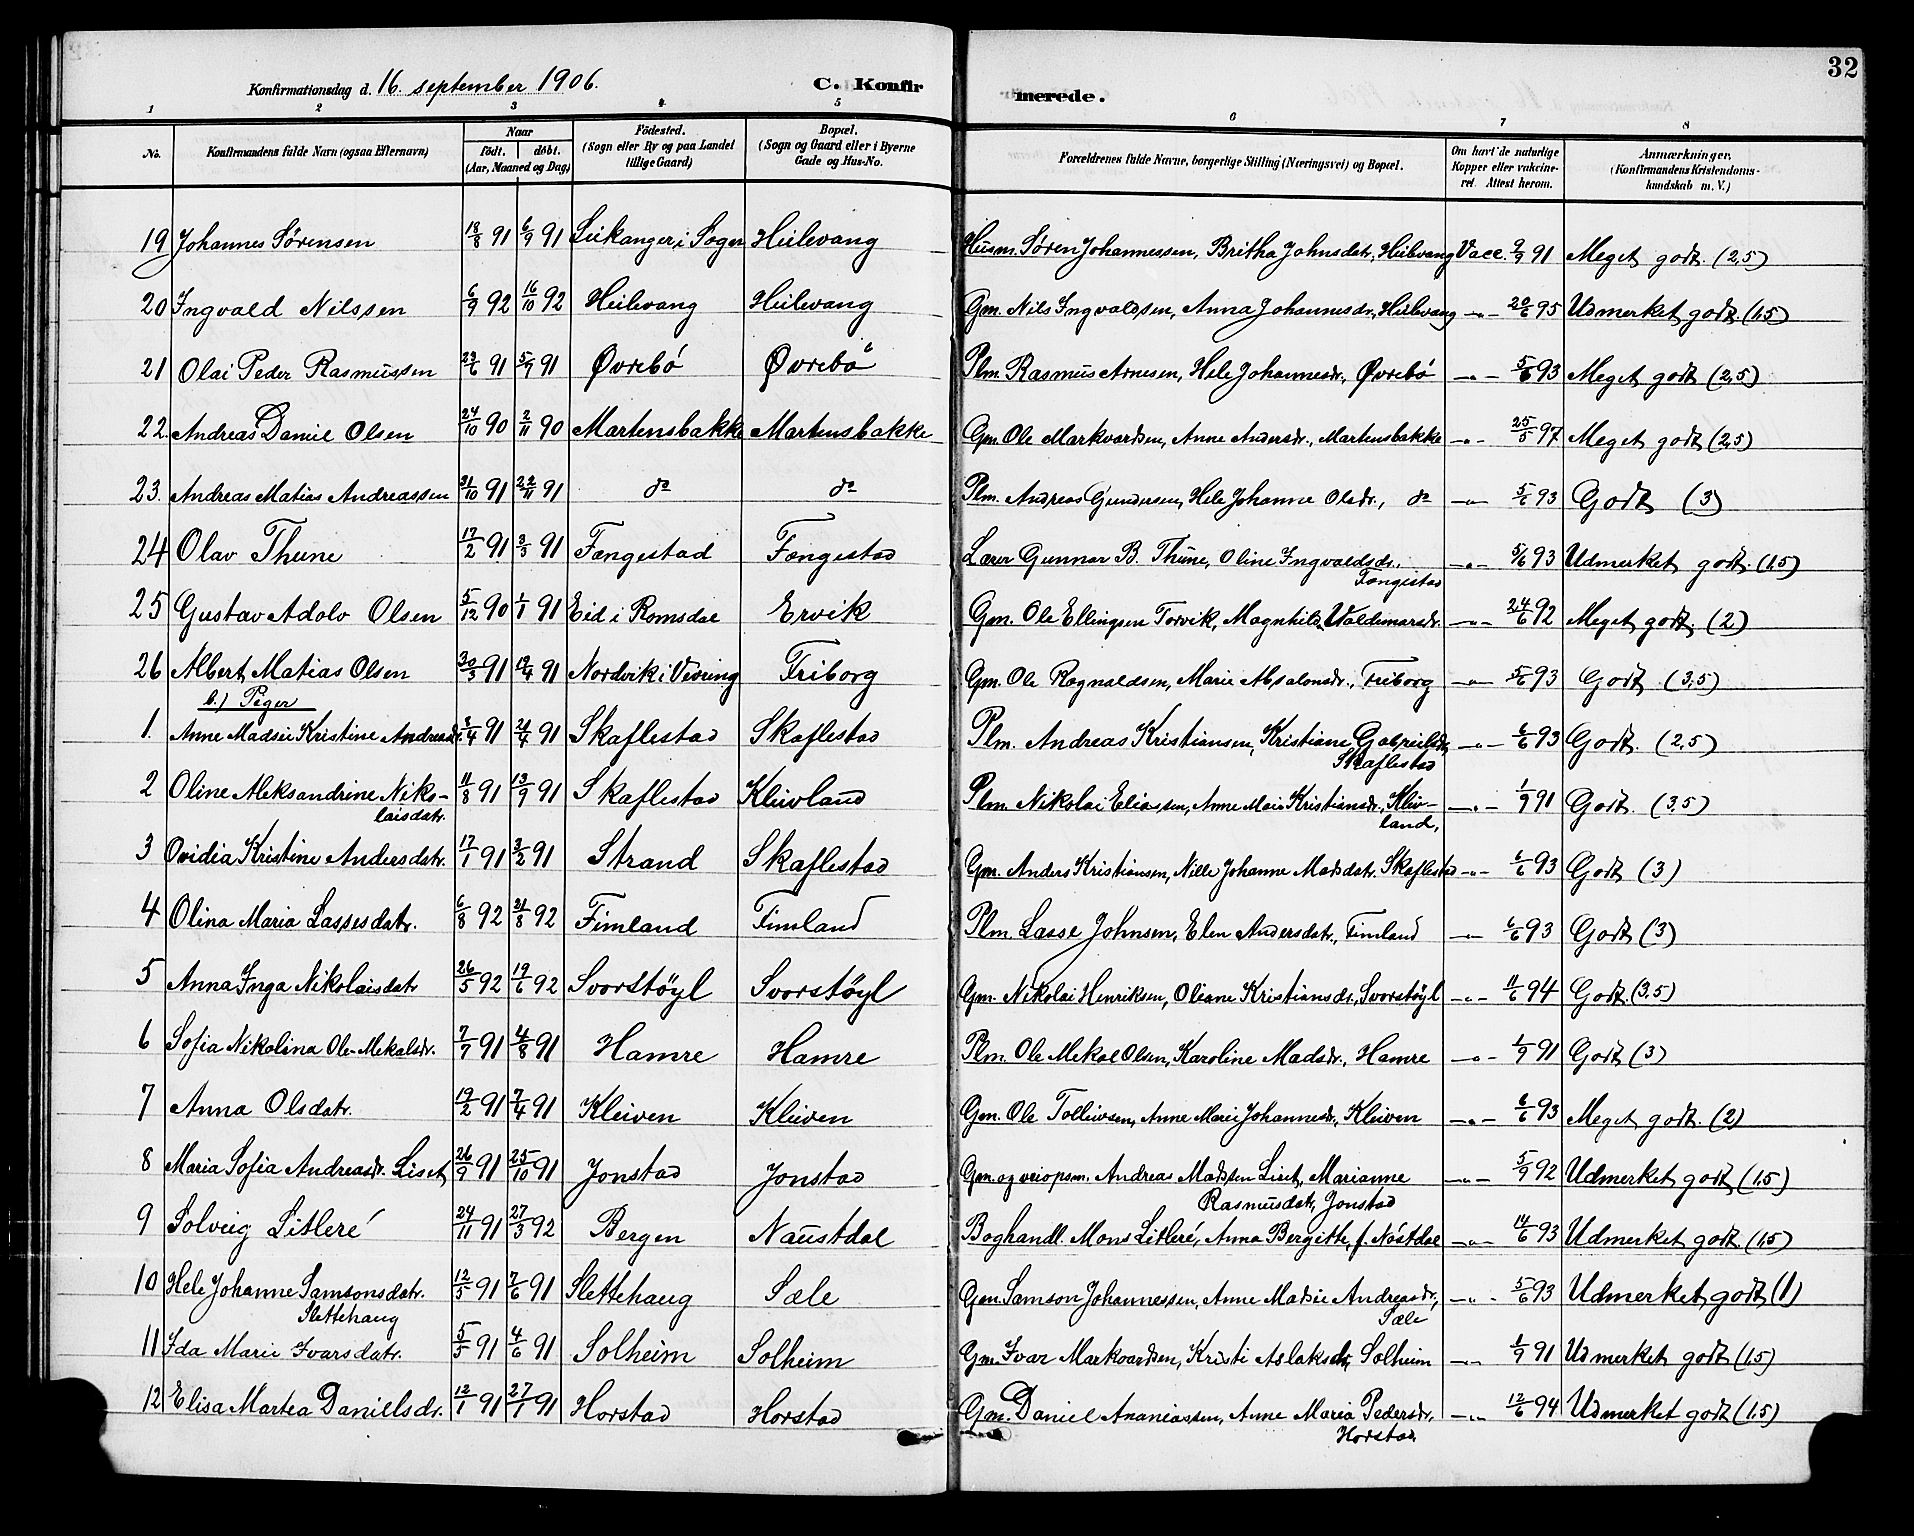 32
Konfirmationsdag d. 16. september 1906. C. Konfirmerede.
1 2 3 4 5 6 7 8
No. Konfirmandens fulde Navn (ogsaa Efternavn) Naar födt. döbt. (Aar, Maaned og Dag) Födested. (Sogn eller By og paa Landet tillige Gaard) Bopæl. (Sogn og Gaard eller i Byerne Gade og Hus-No. Forældrenes fulde Navne, borgerlige Stilling (Næringsvei) og Bopæl. Om havt de naturlige Kopper eller vakcineret. Attest herom. Anmærkninger. (Konfirmandens Kristendomskundskab m. V.)
19 Johannes Sørensen 18/8 91 6/9 91 Leikanger i Sogn Heilevang Husm. Søren Johannessen, Britha Johnsdatr., Heilevang Vacc. 9/9 91 Meget godt. (2,5)
20 Ingvald Nilssen 6/9 92 16/10 92 Heilevang Heilevang Gm. Nils Ingvaldssen, Anna Johannesdr., Heilevang –"– 20/6 95 Udmerket godt. (1,5)
21 Olai Peder Rasmussen 23/6 91 5/7 91 Øvrebö Øvrebö Plm. Rasmus Arnesen, Hele Johannesdr., Øvrebö –"– 5/6 93 Meget godt (2,5)
22. Andreas Daniel Olsen 24/10 90 2/11 90 Martensbakke Martensbakke Gm. Ole Markvardsen, Anne Andersdr., Martensbakke –"– 25/5 97 Meget godt (2,5)
23. Andreas Matias Andreassen 31/10 91 22/11 91 do do Plm. Andreas Gundersen, Hele Johanne Olsdr., do –"– 5/6 93 Godt (3)
24 Olav Thune 17/2 91 3/3 91 Fongestad Fongestad Lærer Gunnar B. Thune, Oline Ingvaldsdr., –"– 5/6 93 Udmerket godt. (1,5)
Fongestad
25 Gustav Adolv Olsen 5/12 90 1/1 91 Eid i Romsdal Ervik Gm. Ole Ellingsen Torvik, Magnhild Valdemarsdr. –"– 24/6 92 Meget godt. (2)
26 Albert Matias Olsen 30/3 91 19/4 91 Nordvik i Vevring Friborg Gm. Ole Rognaldsen, Marie Absalonsdr., Friborg –"– 5/6 93 Godt (3,5)
b.) Piger
1. Anne Madsie Kristine Andreasdr. 3/4 91 21/4 91 Skaflestad Skaflestad Plm. Andreas Kristiansen, Kristiane Gabrielsdr., –"– 6/6 93 Godt. (2,5)
Skaflestad
2 Oline Aleksandrine Niko- 11/8 91 13/9 91 Skaflestad Kleivland Plm. Nikolai Eliassen, Anne Marie Kristiansdr., Kleiv- –"– 1/9 91 Godt. (3,5)
laisdatr. land,
3 Ovidia Kristine Andersdatr. 17/1 91 3/2 91 Strand Skaflestad Gm. Anders Kristiansen, Nille Johanne Madsdatr. Skaflestad –"– 6/6 93 Godt (3)
4 Olina Maria Lassesdatr. 6/8 92 21/8 92 Fimland Fimland Plm. Lasse Johnsen, Elen Andersdatr., Fimland –"– 6/6 93 Godt (3)
5 Anna Inga Nikolaisdatr 26/5 92 19/6 92 Svorstøyl Svorstøyl Gm. Nikolai Henriksen, Oliane Kristiansdr., Svorstøyl –"– 11/6 94 Godt. (3,5)
6 Sofia Nikolina Ole-Mekalsdr. 7/7 91 4/8 91 Hamre Hamre Plm. Ole Mekal Olsen, Karoline Madsdr., Hamre –"– 1/9 91 Godt (3)
7 Anna Olsdatr. 19/2 91 7/4 91 Kleiven Kleiven Gm. Ole Tolleivsen, Anne Marie Johannesdr., Kleiven –"– 6/6 93 Meget godt. (2)
8 Maria Sofia Andreasdr. Liset 26/9 91 25/10 91 Jonstad Jonstad Gm. og veiopsm. Andreas Madssen Liset, Marianne –"– 5/9 92 Udmerket godt (1,5)
Rasmusdatr, Jonstad
9 Solveig Litleré 24/11 91 27/3 92 Bergen Naustdal Boghandl. Mons Litleré, Anna Bergitte, f. Nöstdal –"– 14/6 93 Udmerket godt. (1,5)
10 Hele Johanne Samsonsdatr. 12/5 91 7/6 91 Slettehaug Sæle Gm. Samson Johannessen, Anne Madsie Andreasdr., –"– 5/6 93 Udmerket godt (1)
Slettehaug Sæle
11 Ida Marie Ivarsdatr. 5/5 91 4/6 91 Solheim Solheim Gm. Ivar Markvardsen, Kristi Aslaksdr, Solheim –"– 1/9 91 Udmerket godt (1,5)
12 Elisa Martea Danielsdr. 12/1 91 27/1 91 Horstad Horstad Gm. Daniel Ananiassen, Anne Maria Pedersdr., –"– 12/6 94 Udmerket godt (1,5)
Horstad